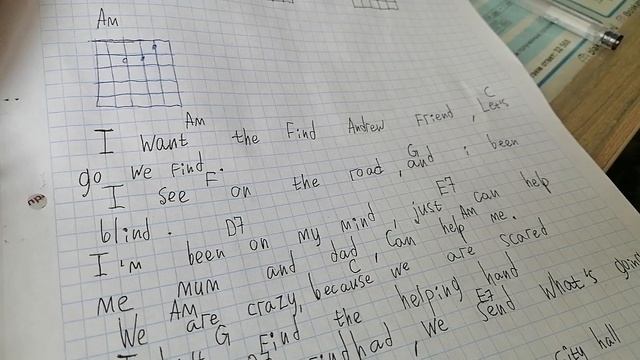 Am
Am C
I want the Find Andrew Friend, Let's
go we Find.
F. G
I see on the road, and i been
blind.
D7 E7
I'm been on my mind, just can help
Am
me mum and dad, can help me.
Am C
We are crazy, because we are scared
G
Find the helping hand
E7
had, we send what's goin
city hall